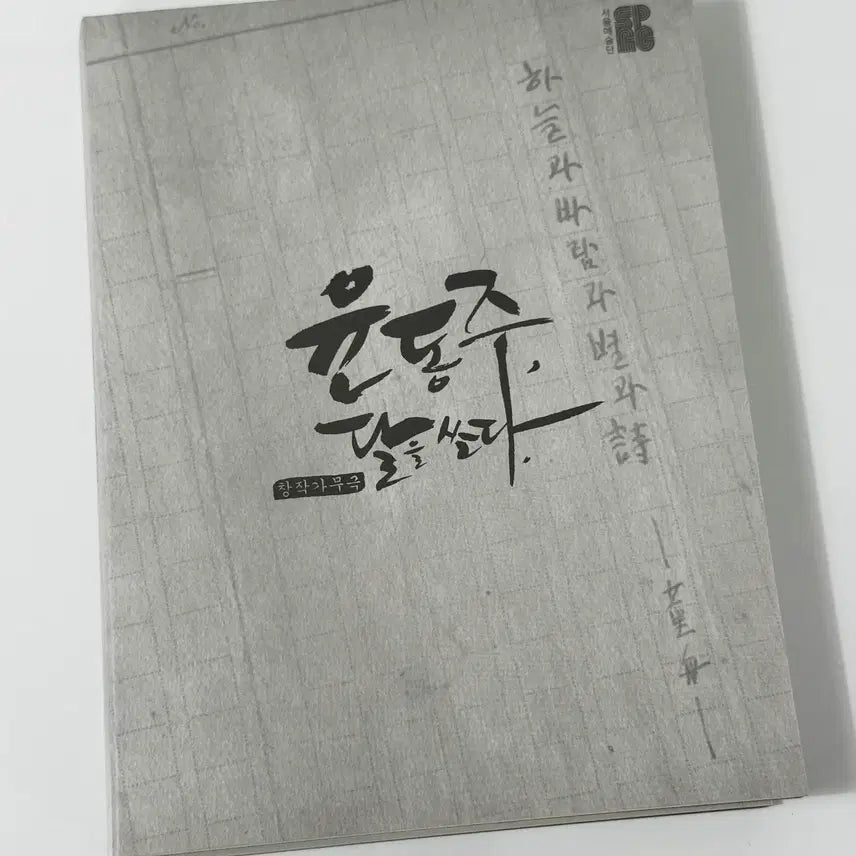 No.
서울예술단
SPAC
하늘과 바람과 별과 詩
윤동주,
달을 쏘다.
창작가무극
— 童舟 —